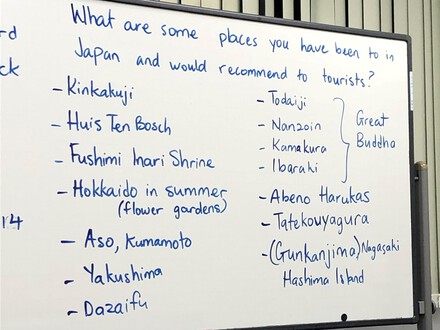 rd
ck
14
What are some places you have been to in
Japan and would recommend to tourists?
- Kinkakuji
- Huis Ten Bosch
- Fushimi Inari Shrine
- Hokkaido in summer
(flower gardens)
- Aso, Kumamoto
- Yakushima
- Dazaifu
- Todaiji
- Nanzoin
- Kamakura
- Ibaraki
Great
Buddha
- Abeno Harukas
- Tatekouyagura
- (Gunkanjima) Nagasaki
Hashima Island